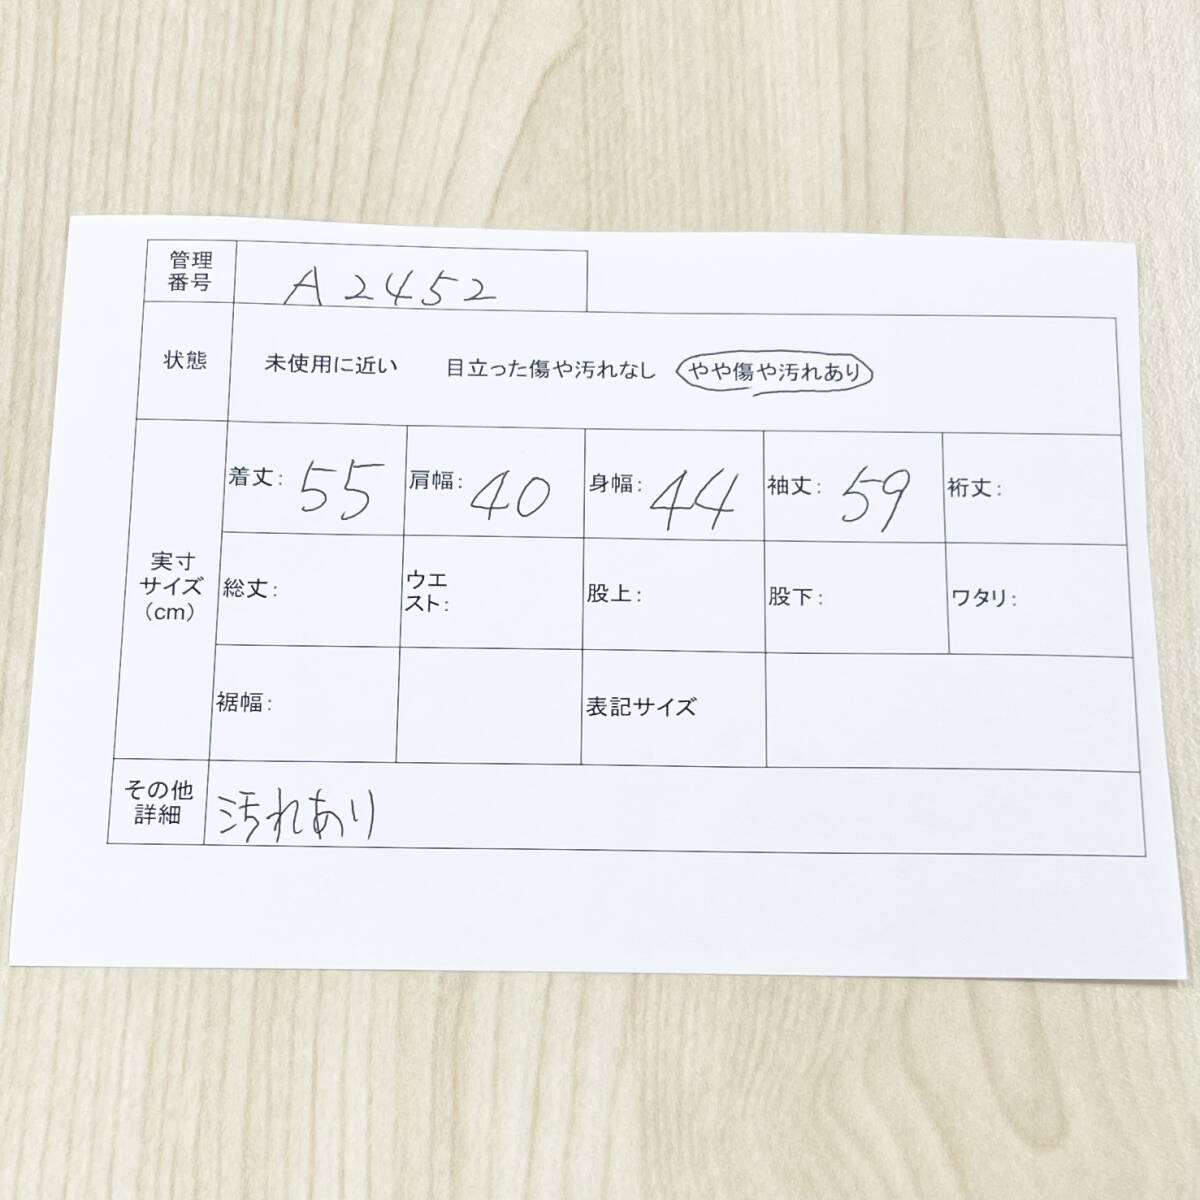 管理
番号
A2452
状態
未使用に近い 目立った傷や汚れなし やや傷や汚れあり
実寸
サイズ
（cm）
着丈: 55 肩幅: 40 身幅: 44 袖丈: 59 裄丈:
総丈: ウエ
スト: 股上: 股下: ワタリ:
裾幅: 表記サイズ
その他
詳細
汚れあり